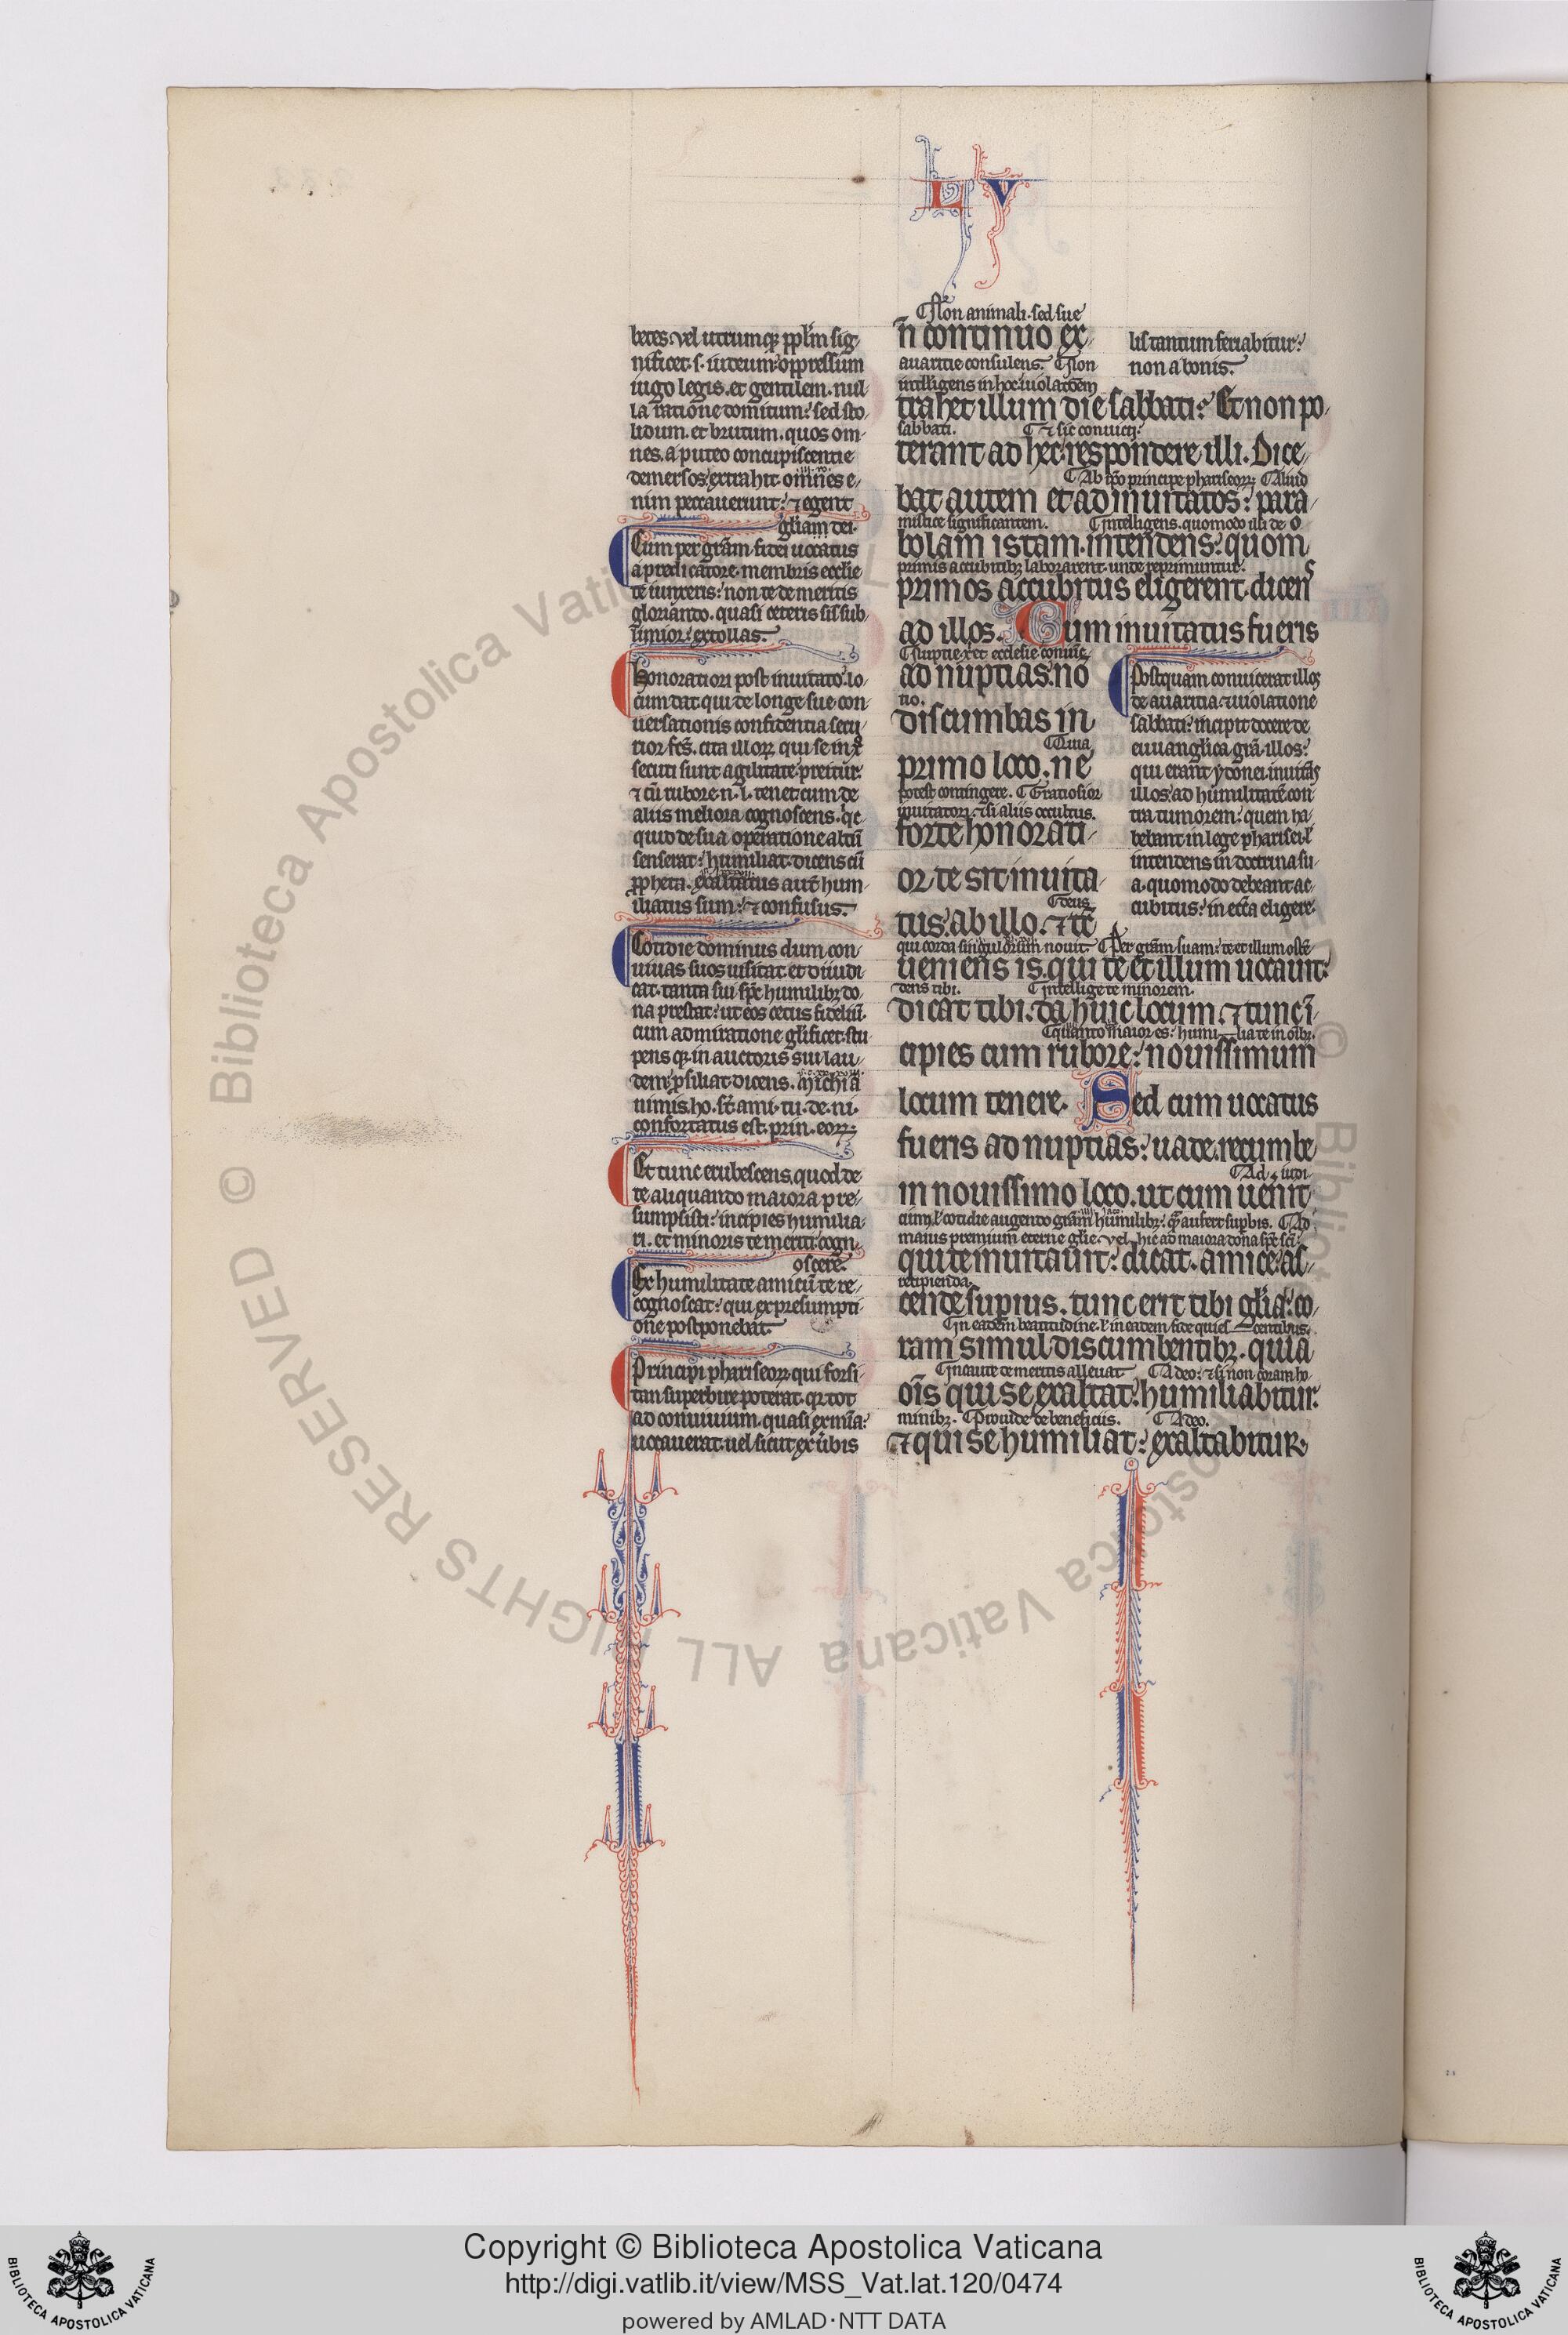 L V
betes. vel utrumque pplm sig
nificet. s. iudeum oppressum
iugo legis. et gentilem. nul
la ratione domitum: sed sto
lidum. et brutum. quos om
nes. a puteo concupiscentie
demersos extrahit. omnes e
nim peccauerunt: ⁊ egent
gliam dei.
Cum per gram fidei uocatus
a predicatore. membris ecclie
te iunxeris: non te de meritis
gloriando. quasi ceteris sis sub
limior: extollas.
Honoratiori post inuitato. lo
cum dat. qui de longe sue con
uersationis confidentia secu
rior fcs. cita illoꝝ qui se in x
secuti sunt agilitate preitur
⁊ cu rubore. n. l. tenet. cum de
aliis meliora cognoscens.
quid de sua operatione altu
senserat: humiliat. dicens cu
ppheta. exaltatus aut hum
iliatus sum: ⁊ confusus.
Cotidie dominus dum con
uiuas suos uisitat. et diiudi
cat. tanta sui spc humilibꝫ do
na prestat: ut eos cetus fidelium
cum admiratione glificet. stu
pens qꝫ in auctoris sui lau
dem psiliat dicens. michi a
nimis. ho. st ami. tu. de. ni.
confortatus est. prin. eoꝝ.
Et tunc erubescens quod de
te aliquando maiora pre
sumpsisti: incipies humilia
ri. et minoris te meriti cogn
oscere.
Ex humilitate amicu te re
cognoscat: qui ex presumpti
one postponebat.
Principi phariseoꝝ qui forsi
tan superbire poterat. qꝛ tot
ad conuiuium. quasi ex mia:
uocauerat. uel sicut ex ubis
Non animali. sed sue
n continuo ex
auaritie consulens. Non
intelligens in hoc uiolatoem
trahet illum die sabbati? Et non po
sabbati. Et sic conuicti
terant ad hec respondere illi. Dice
Ab ipo principe phariseoꝝ Aliud
bat autem et ad inuitatos: para
mistice significantem. Intelligens. quomodo illi de
bolam istam. intendens: quom o
primis accubitibꝫ laborarent. unde reprimuntur.
primos accubitus eligerent. dicen s
ad illos. Cum inuitatus fueris
Nuptie x et ecclesie coniu
ad nuptias. no
no.
discumbas in
Quia
primo loco. ne
potest contingere. Gratiosior
inuitatori. ⁊si aliis occultus.
forte honorati
or te sit inuita
deus
tus ab illo. ⁊ te
qui corda singulorum nouit. Per gram suam: te et illum
ueniens is. qui te et illum uocauit:
dens tibi. Intellige te minorem.
dicat tibi. da huic locum. ⁊ tunc i
Quanto maior es: humilia te in oibꝫ.
cipies cum rubore: nouissimum
locum tenere. Sed cum uocatus
fueris ad nuptias: uade. recumbe
Ad iudi
in nouissimo loco. ut cum uenit
cium. l cotidie augendo gram humilibꝫ: aufert supbis. Ad
maius premium eterne glie. vel hic ad maiora dona spc sci
qui te inuitauit: dicat. amice. as
recipienda.
cende supius. tunc erit tibi glia: co
In eadem beatitudine. l in eadem fide quiescentibus.
ram simul discumbentibꝫ. quia
Incaute de meritis alleuat A deo: ⁊ si non coram ho
ois qui se exaltat: humiliabitur.
minibꝫ. Prouide de beneficiis. A deo.
⁊ qui se humiliat: exaltabitur.
lis tantum feriabitur?
non a bonis.
Postquam conuicerat illos
de auaritia. ⁊ uiolatione
sabbati: incipit docere de
euuanglica gra. illos:
qui erant ydonei. inuitas
illos ad humilitate con
tra tumorem: quem ha
bebant in lege pharisei. l
intendens in doctrina su
a. quomodo debeant ac
cubitus: in ecca eligere.
© Biblioteca Apostolica Vaticana ALL RIGHTS RESERVED
Copyright © Biblioteca Apostolica Vaticana
http://digi.vatlib.it/view/MSS_Vat.lat.120/0474
powered by AMLAD·NTT DATA
BIBLIOTECA APOSTOLICA VATICANA
BIBLIOTECA APOSTOLICA VATICANA